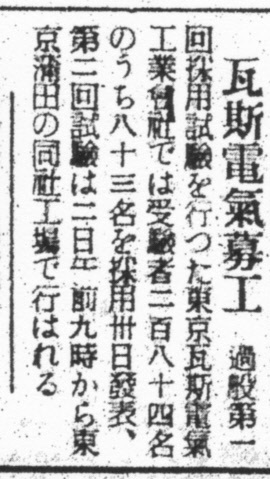 瓦斯電氣募工 過般第一
回採用試驗を行つた東京瓦斯電氣
工業會社では受驗者二百八十四名
のうち八十三名を採用卅日發表、
第二回試驗は二日午前九時から東
京蒲田の同社工場で行はれる